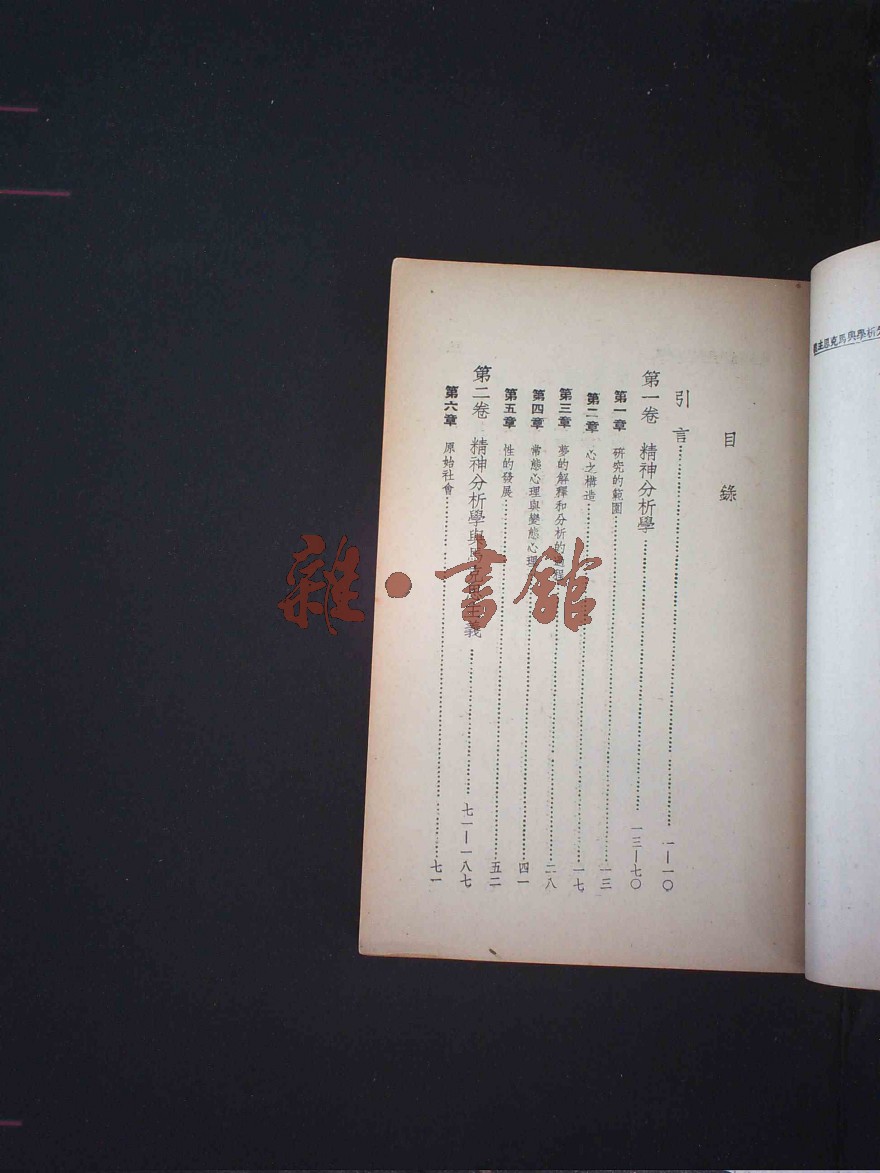 目錄
引言 一—一〇
第一卷 精神分析學 一三—七〇
第一章 研究的範圍 一三
第二章 心之構造 一七
第三章 夢的解釋和分析的過程 二八
第四章 常態心理與變態心理 四一
第五章 性的發展 五二
第二卷 精神分析學與馬克思主義 七一—一八七
第六章 原始社會 七一
析學與馬克思主
雜·書館